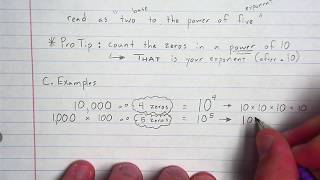 base exponent
read as "two to the power of five"
* Pro Tip: count the zeros in a power of 10
↳ THAT is your exponent (after a 10)
C. Examples
10,000 → 4 zeros = 10⁴ → 10 × 10 × 10 × 10
1,000 × 100 → 5 zeros = 10⁵ → 10